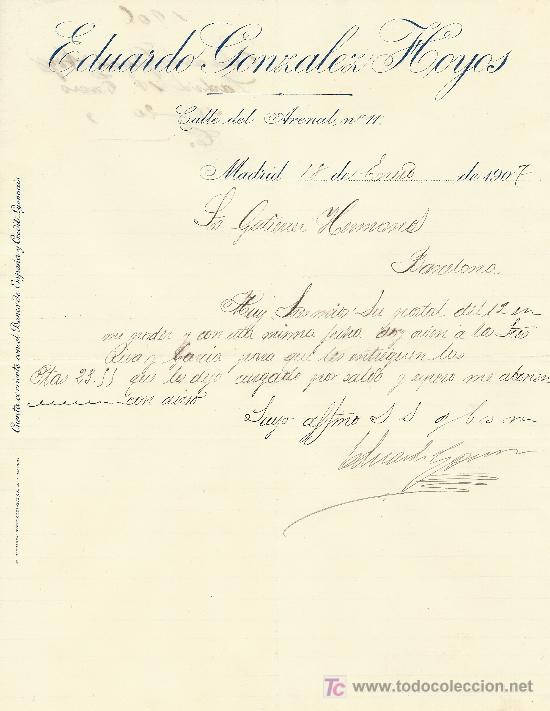 Eduardo Gonzalez Hoyos
Calle del Arenal, nº 11.
Madrid 18 de Enero de 1907
Hermanos
Barcelona
Muy Sres mios: Su postal del 12 en
mi poder y con esta misma fecha doy orden a los Sres
para que les entreguen las
Ptas 23.55 que les dejo cargado por saldo y espero me abonen
con aviso
Suyo affmo S S q b s m
Eduardo
Cuenta corriente con el Banco de España y Crédit Lyonnais
TC www.todocoleccion.net